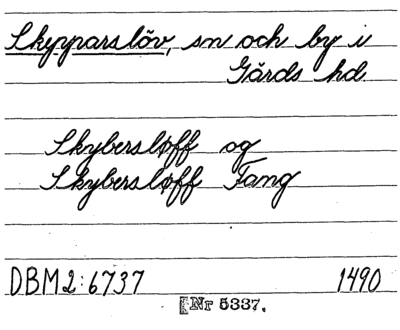 Skypparslöv, sn och by i
Gärds hd.
Skybersløff og
Skybersløff Fang
DBM2:6737 1490
[Nr 5337.